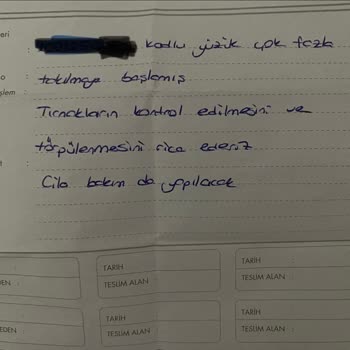 eri
: kodlu yüzük çok fazla
o : takılmaya başlamış
şlem
Tırnakların kontrol edilmesini ve
: törpülenmesini rica ederiz
Cila bakım da yapılacak
TARİH
TARİH
EDEN :
TESLİM ALAN :
TESLİM ALAN :
TARİH
TARİH
EDEN
TESLİM ALAN :
TESLİM ALAN :